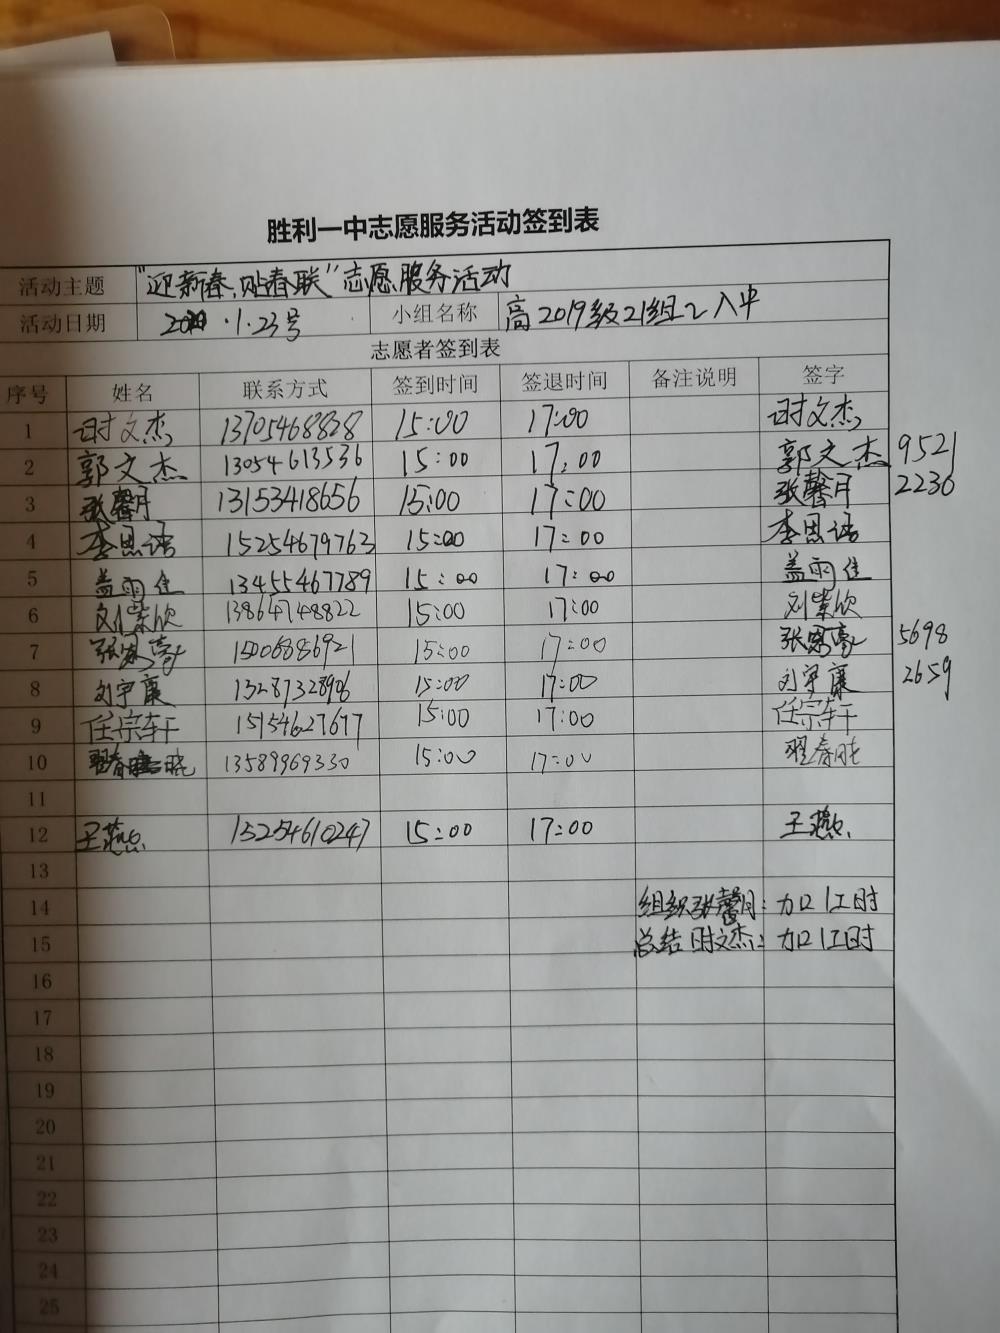 胜利一中志愿服务活动签到表
活动主题 "迎新春,贴春联"志愿服务活动
活动日期 1.23号 小组名称 高2019级21组
志愿者签到表
序号 姓名 联系方式 签到时间 签退时间 备注说明 签字
1 时文杰 13705468828 15:00 17:00 时文杰
2 郭文杰 13054613536 15:00 17:00 郭文杰 9521
3 张馨月 13153418656 15:00 17:00 张馨月 2236
4 李思语 15254679763 15:00 17:00 李思语
5 盖雨佳 13455467789 15:00 17:00 盖雨佳
6 刘紫欣 13864748822 15:00 17:00 刘紫欣
7 张家豪 15006886921 15:00 17:00 张家豪 5698
8 刘宇康 13287328906 15:00 17:00 刘宇康 2659
9 任宗轩 15154627677 15:00 17:00 任宗轩
10 翟春晓 13589969330 15:00 17:00 翟春晓
11
12 王燕 15254610247 15:00 17:00 王燕
13
14 组织张馨月:加1工时
15 总结时文杰:加1工时
16
17
18
19
20
21
22
23
24
25